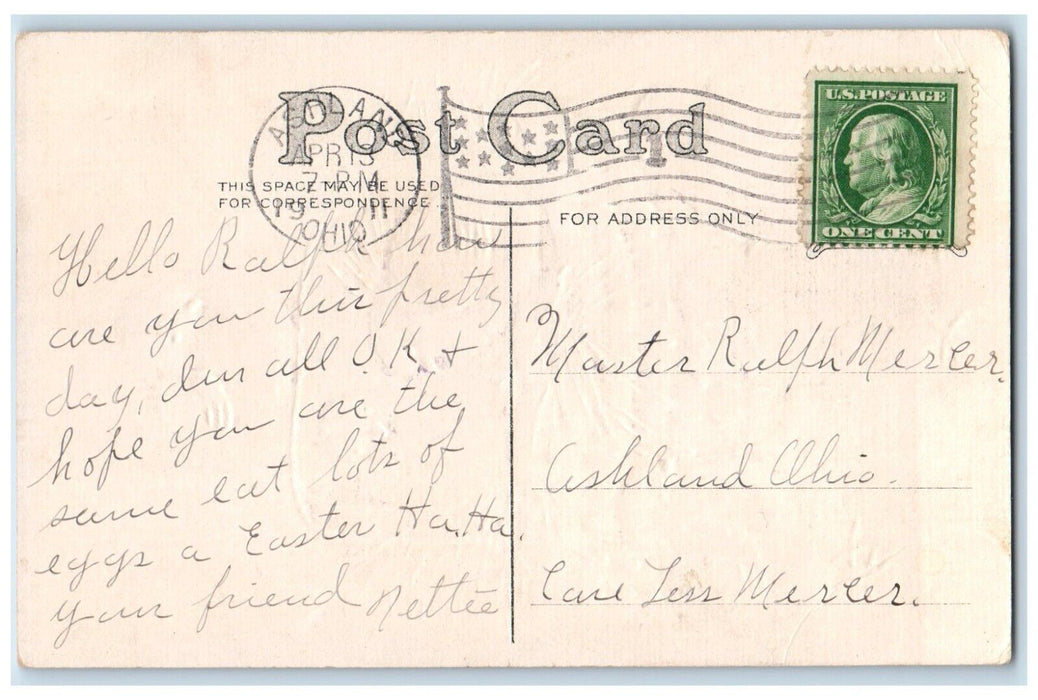 Post Card
ASHLAND
APR 13
7 PM
1911
OHIO
THIS SPACE MAY BE USED
FOR CORRESPONDENCE
FOR ADDRESS ONLY
U.S.POSTAGE
ONE CENT
Hello Ralph how
are you this pretty
day, all O.K +
hope you are the
same eat lots of
eggs a Easter Ha.Ha.
your friend Nettie
Master Ralph Mercer.
Ashland Ohio.
Care Mercer.